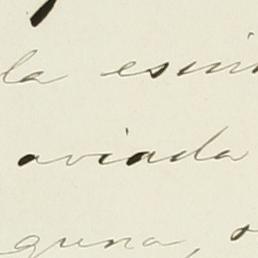 la escri
aviada
guna, o